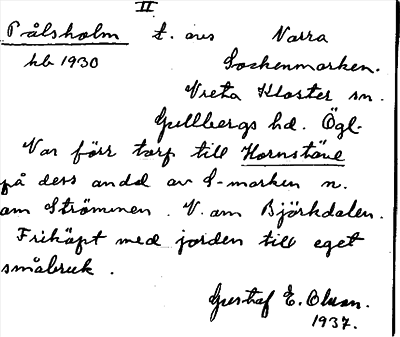 II
Pålsholm t. avs Norra
hb 1930 Sockenmarken.
Vreta Kloster sn.
Gullbergs hd. Ögl.
Var förr torp till Hornstäve
på dess andel av S-marken n.
om Strömmen. V. om Björkdalen.
Friköpt med jorden till eget
småbruk.
Gustaf E. Olsson.
1937.